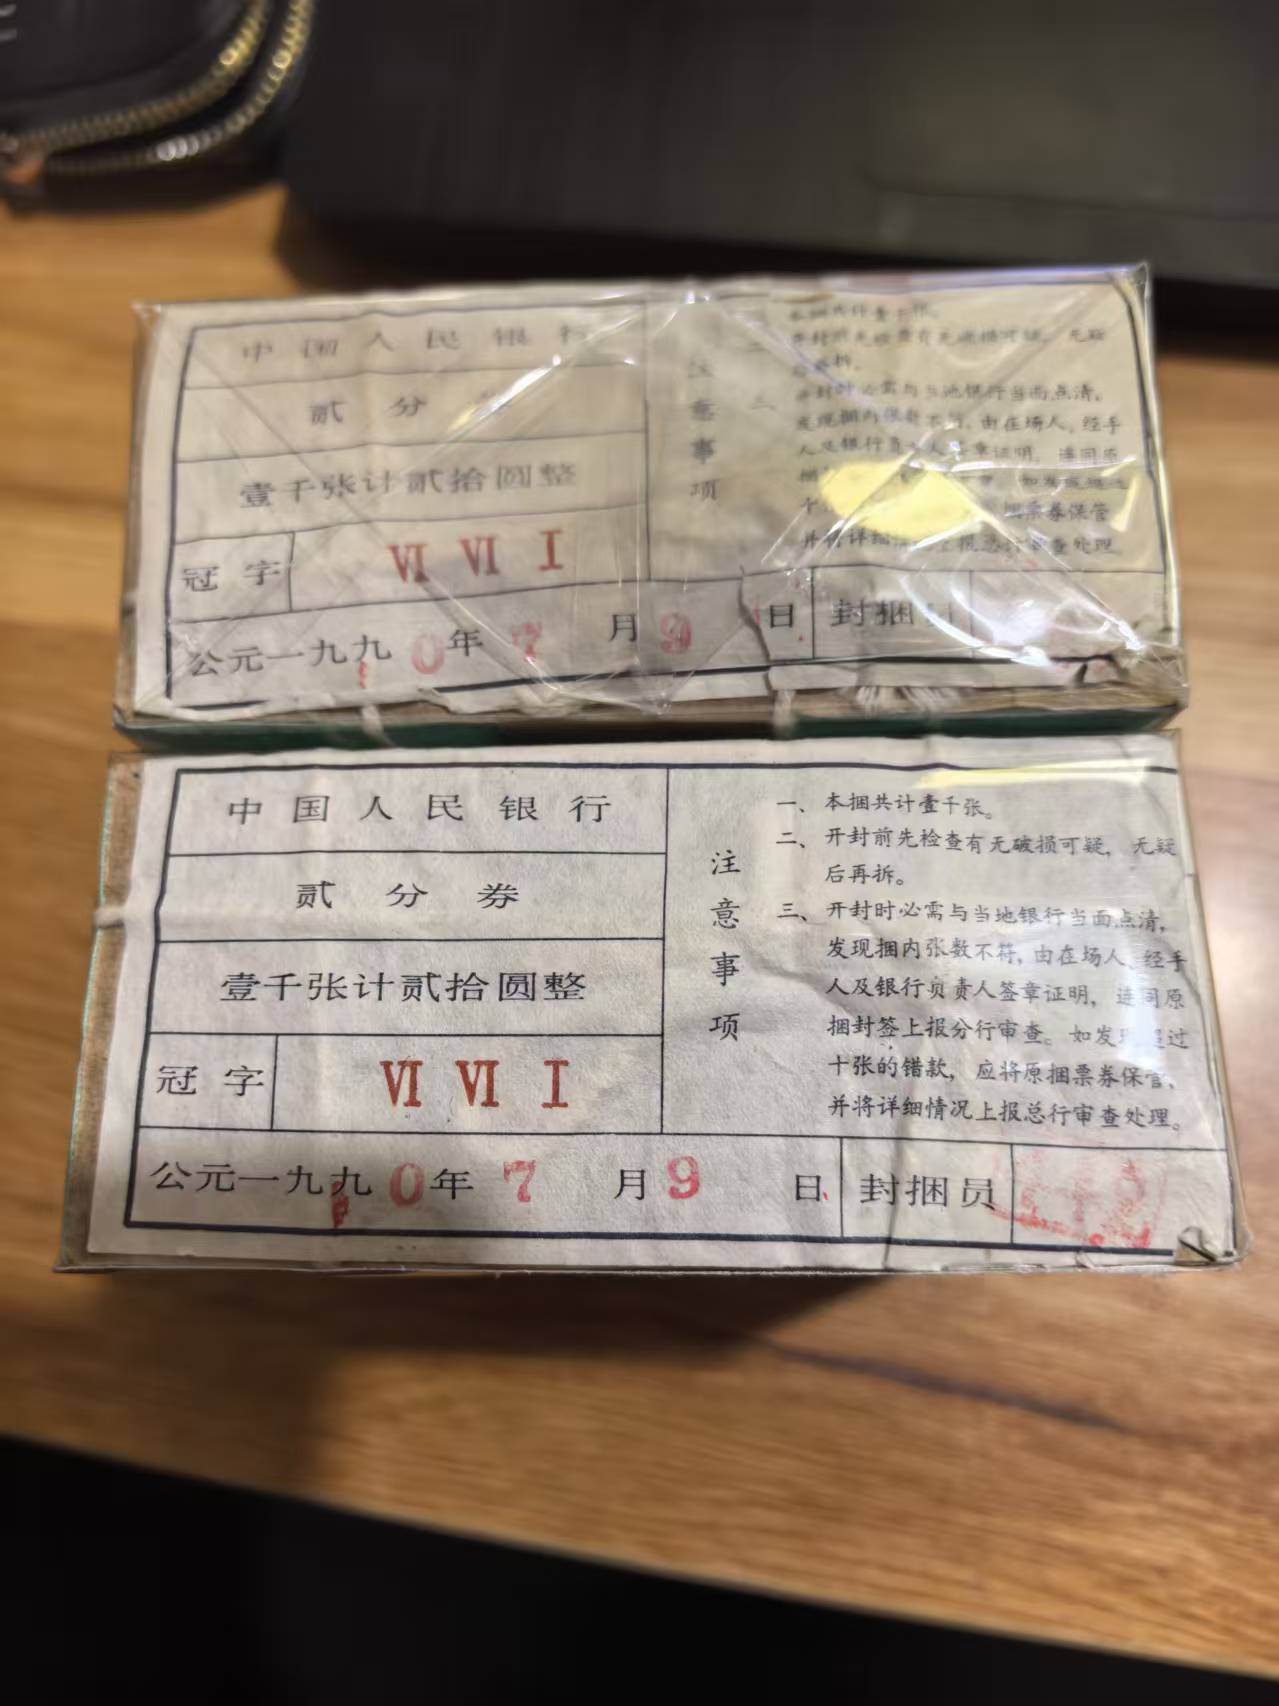 中国人民银行
贰分券
壹千张计贰拾圆整
冠字 Ⅵ Ⅵ Ⅰ
公元一九九0年7月9日 封捆
注意事项
本捆共计壹千张。
开封前先检查有无破损可疑，无疑
后再拆。
三、开封时必需与当地银行当面点清，
发现捆内张数不符，由在场人、经手
人及银行负责人签章证明，连同原
捆票券保管
并将详细情况上报总行审查处理
中国人民银行
贰分券
壹千张计贰拾圆整
冠字 Ⅵ Ⅵ Ⅰ
公元一九九0年7月9日 封捆员
注意事项
一、本捆共计壹千张。
二、开封前先检查有无破损可疑，无疑
后再拆。
三、开封时必需与当地银行当面点清，
发现捆内张数不符，由在场人、经手
人及银行负责人签章证明，连同原
捆封签上报分行审查。如发现超过
十张的错款，应将原捆票券保管，
并将详细情况上报总行审查处理。